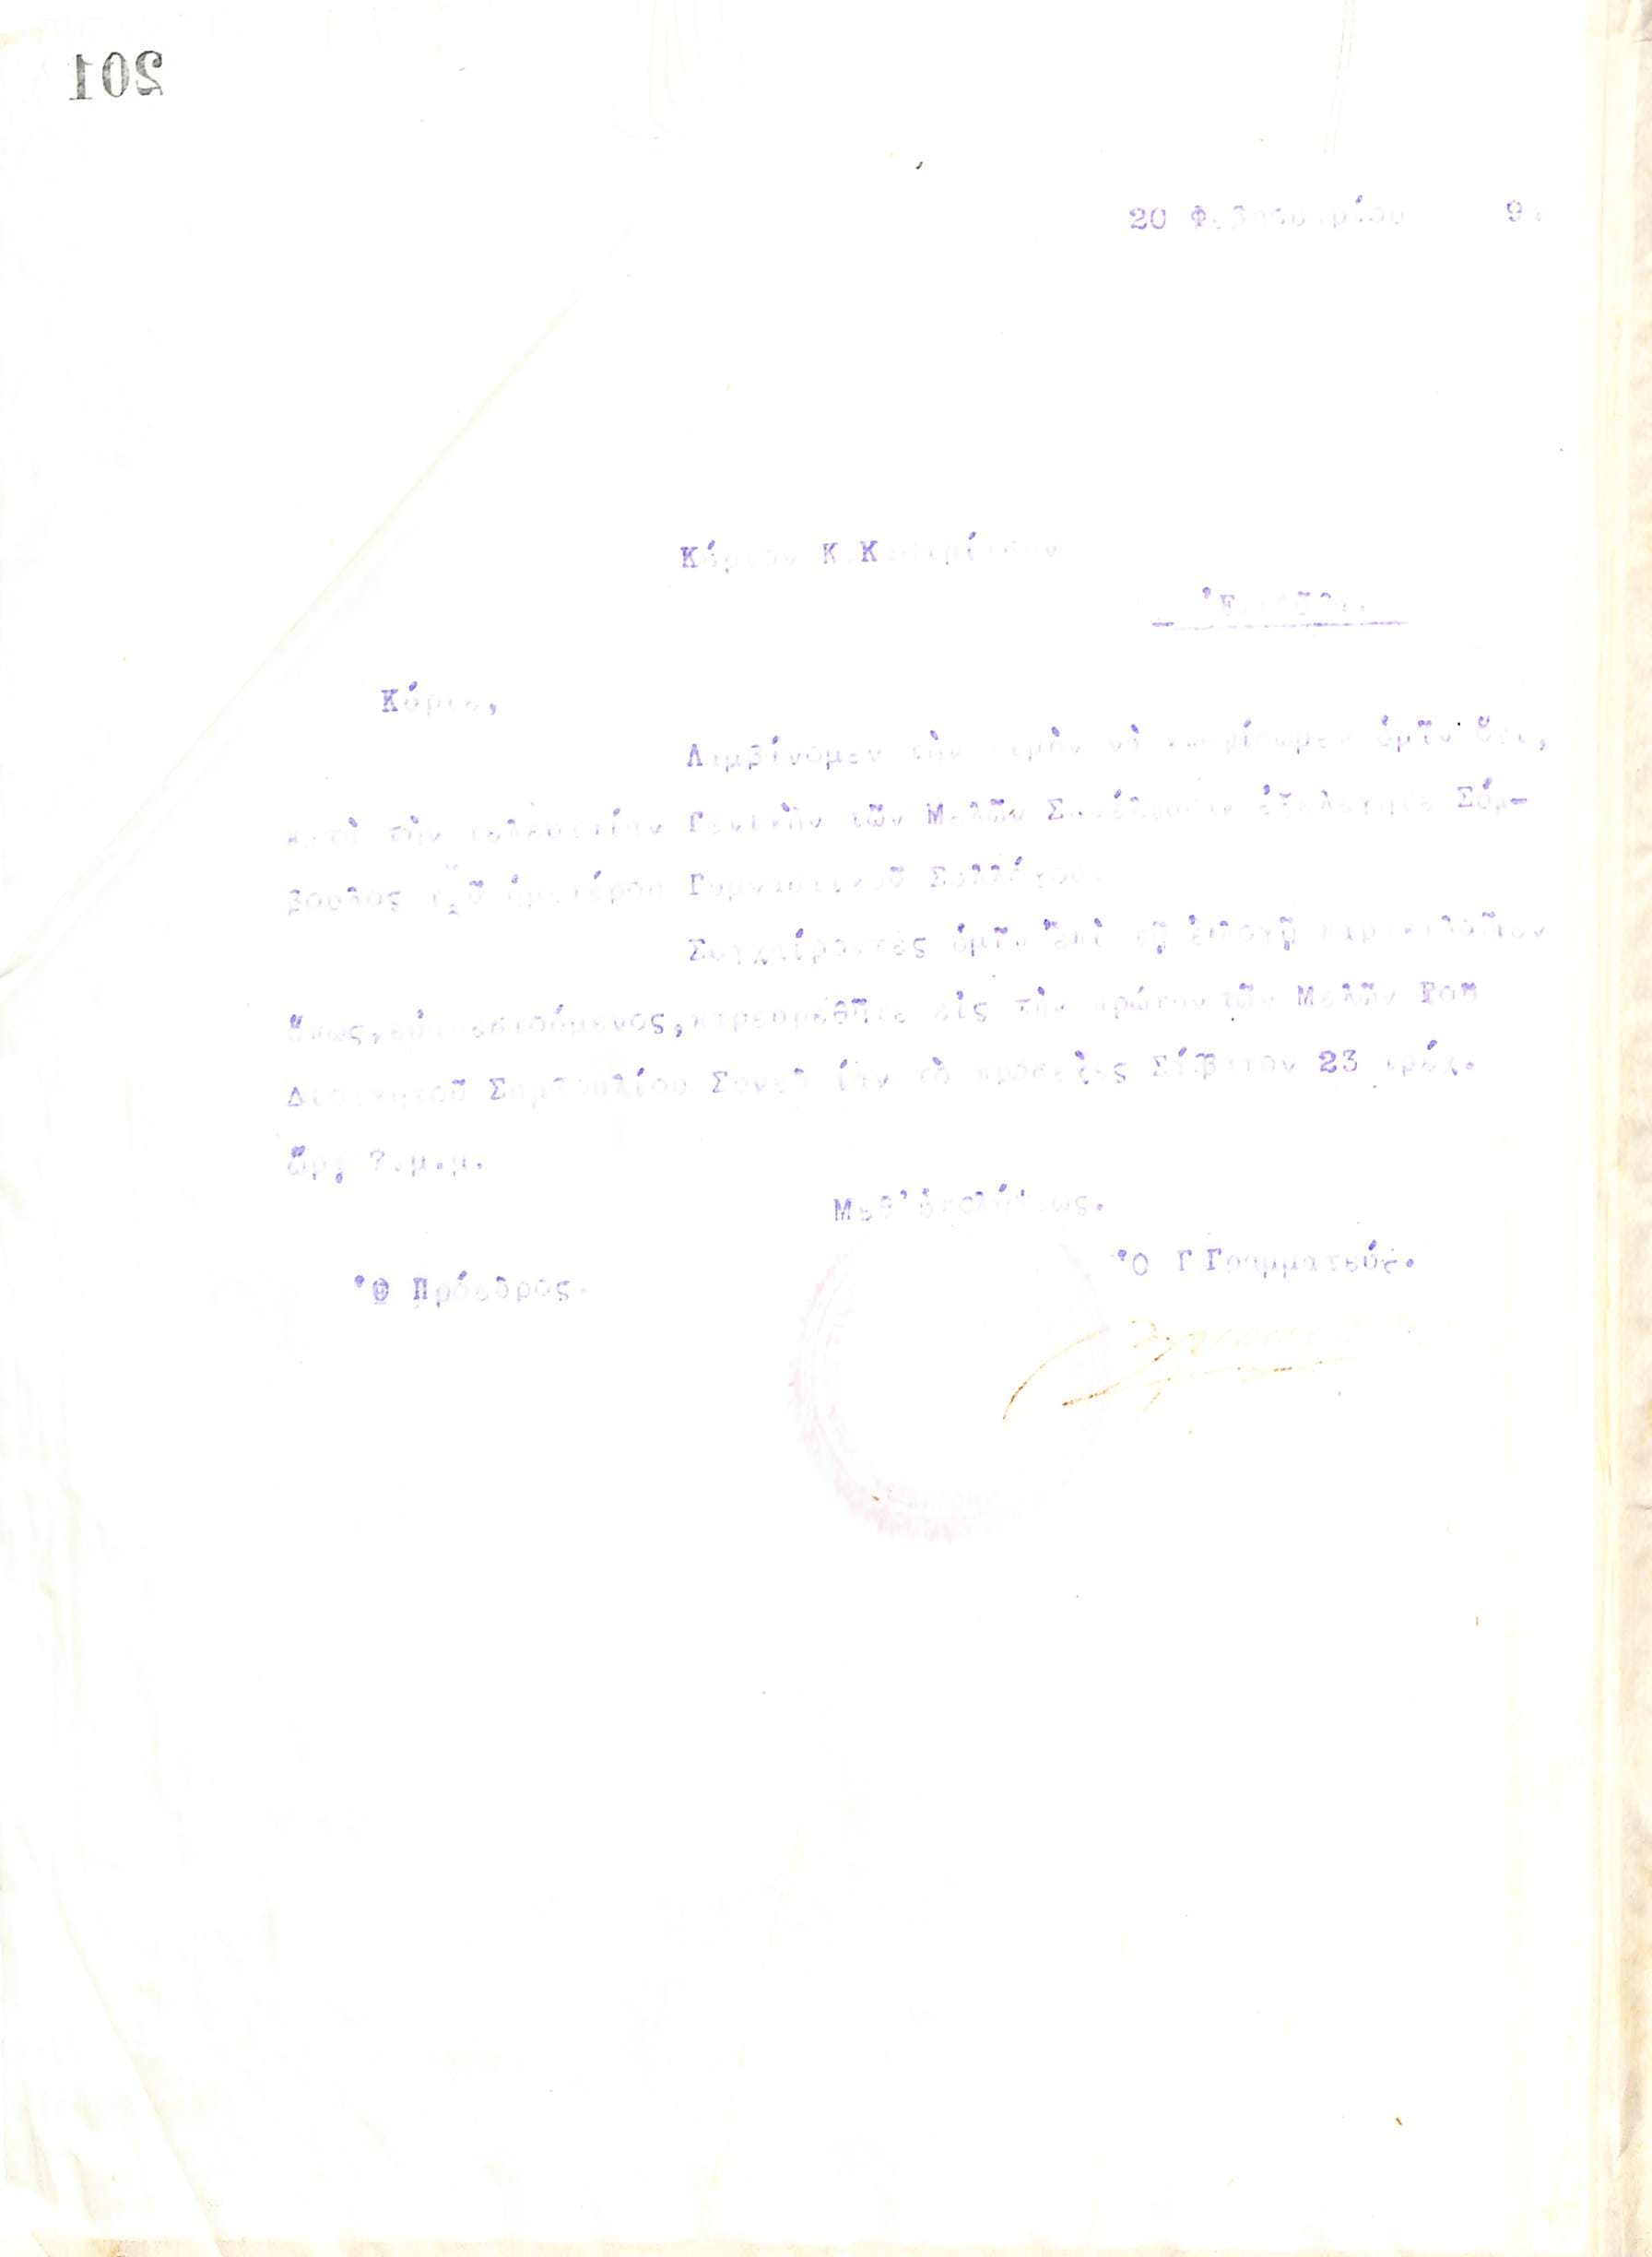 201
20 Φεβρουαρίου 9.
Κύριον Κ.
Ἐνταῦθα
Κύριε,
Λαμβάνομεν τὴν τιμὴν νὰ γνωρίσωμεν ὑμῖν ὅτι,
κατὰ τὴν τελευταίαν Γενικὴν τῶν Μελῶν Συνέλευσιν ἐξελέγητε Σύμ-
βουλος τοῦ ἡμετέρου Γυμναστικοῦ Συλλόγου.
Συγχαίροντες ὑμῖν ἐπὶ τῇ ἐκλογῇ παρακαλοῦμεν
ὅπως, εὐαρεστούμενος, εἰς τὴν πρώτην τῶν Μελῶν
Διοικητοῦ Συμβουλίου τὸ προσεχὲς Σάββατον 23 τρέχ.
ὥρᾳ μ.μ.
Μεθ' ὑπολήψεως.
Ὁ Γ Γραμματεύς.
Ὁ Πρόεδρος.